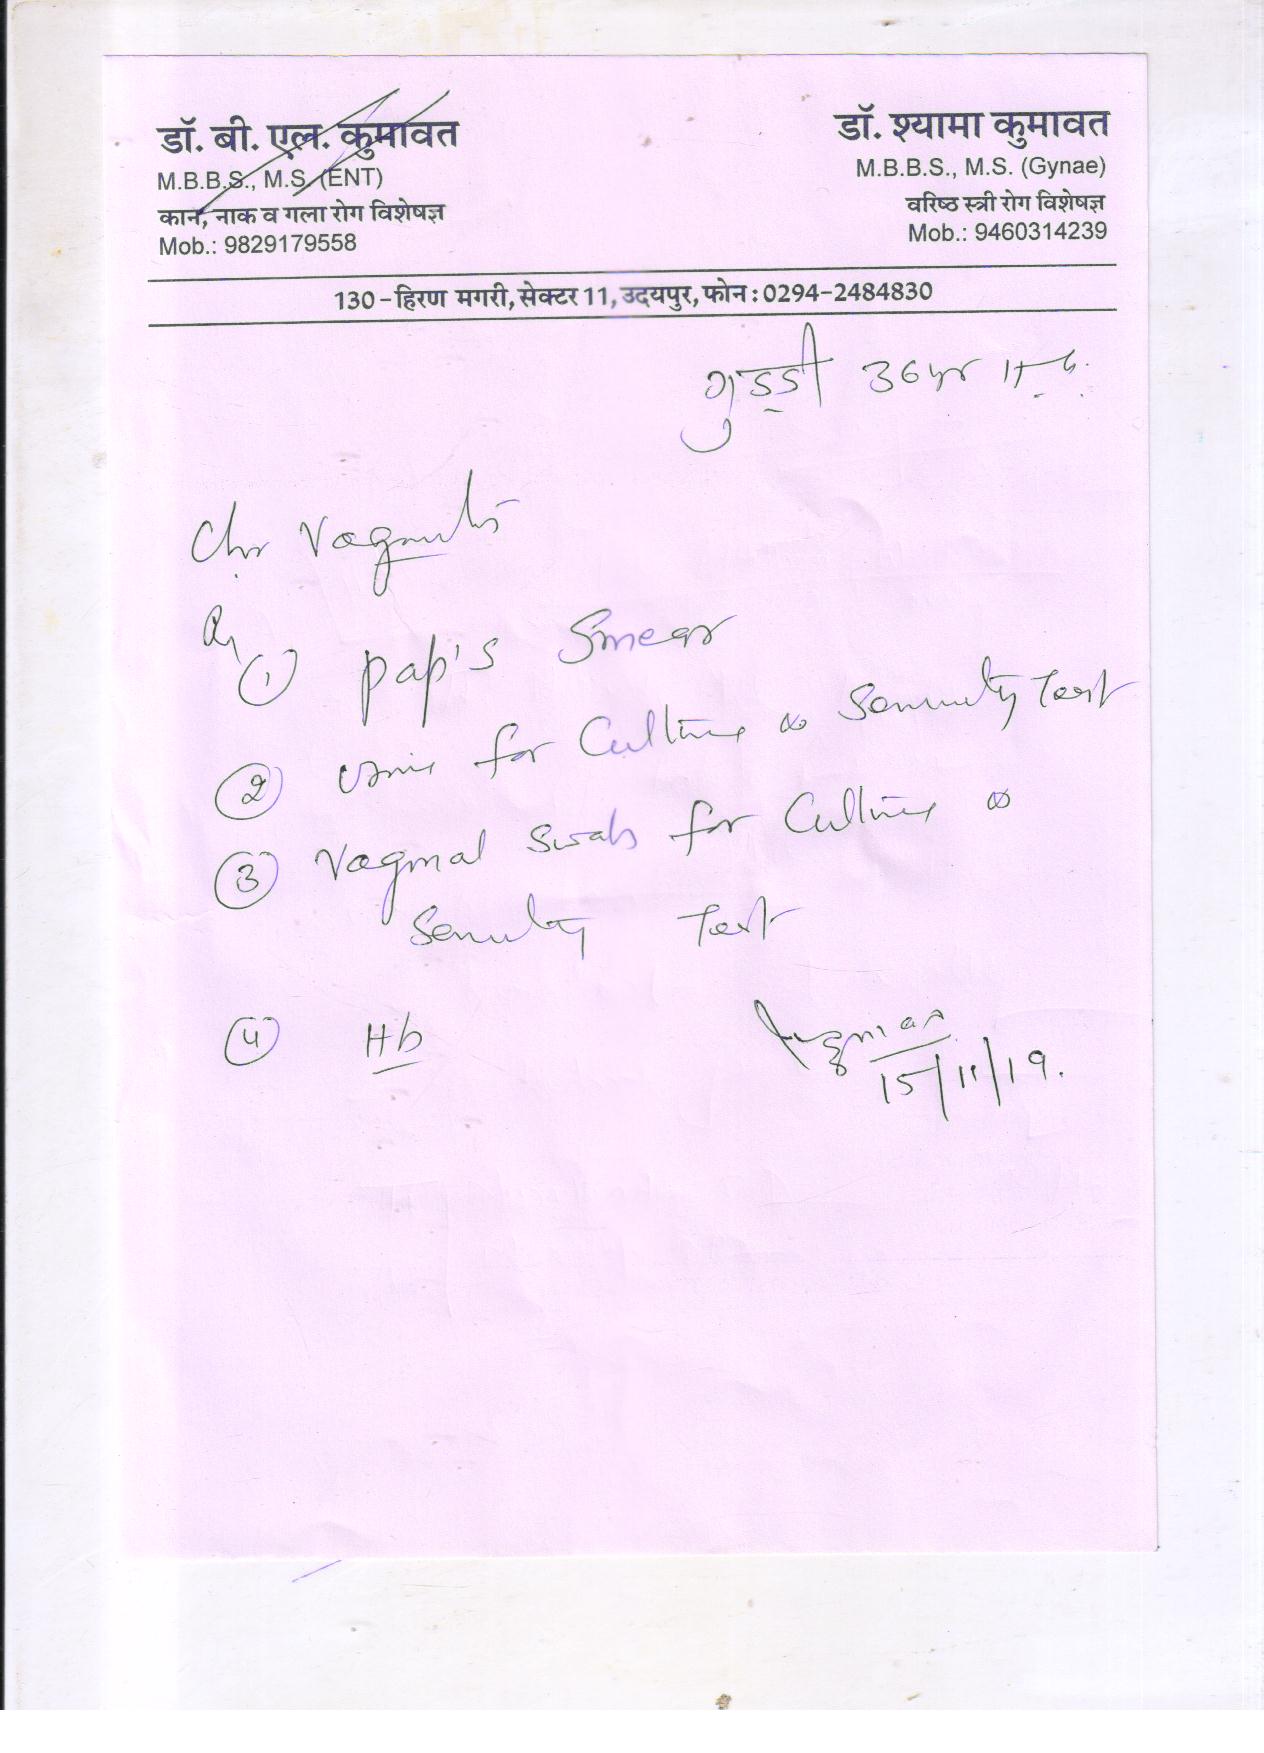 डॉ. बी. एल. कुमावत
M.B.B.S., M.S. (ENT)
कान, नाक व गला रोग विशेषज्ञ
Mob.: 9829179558
डॉ. श्यामा कुमावत
M.B.B.S., M.S. (Gynae)
वरिष्ठ स्त्री रोग विशेषज्ञ
Mob.: 9460314239
130-हिरण मगरी, सेक्टर 11, उदयपुर, फोन : 0294-2484830
गुड्डी 36yr
Chr Vaginitis
Rx
① Pap's Smear
② Urine for Culture & Sensitivity Test
③ Vaginal Swab for Culture &
Sensitivity Test
④ Hb
15/11/19.